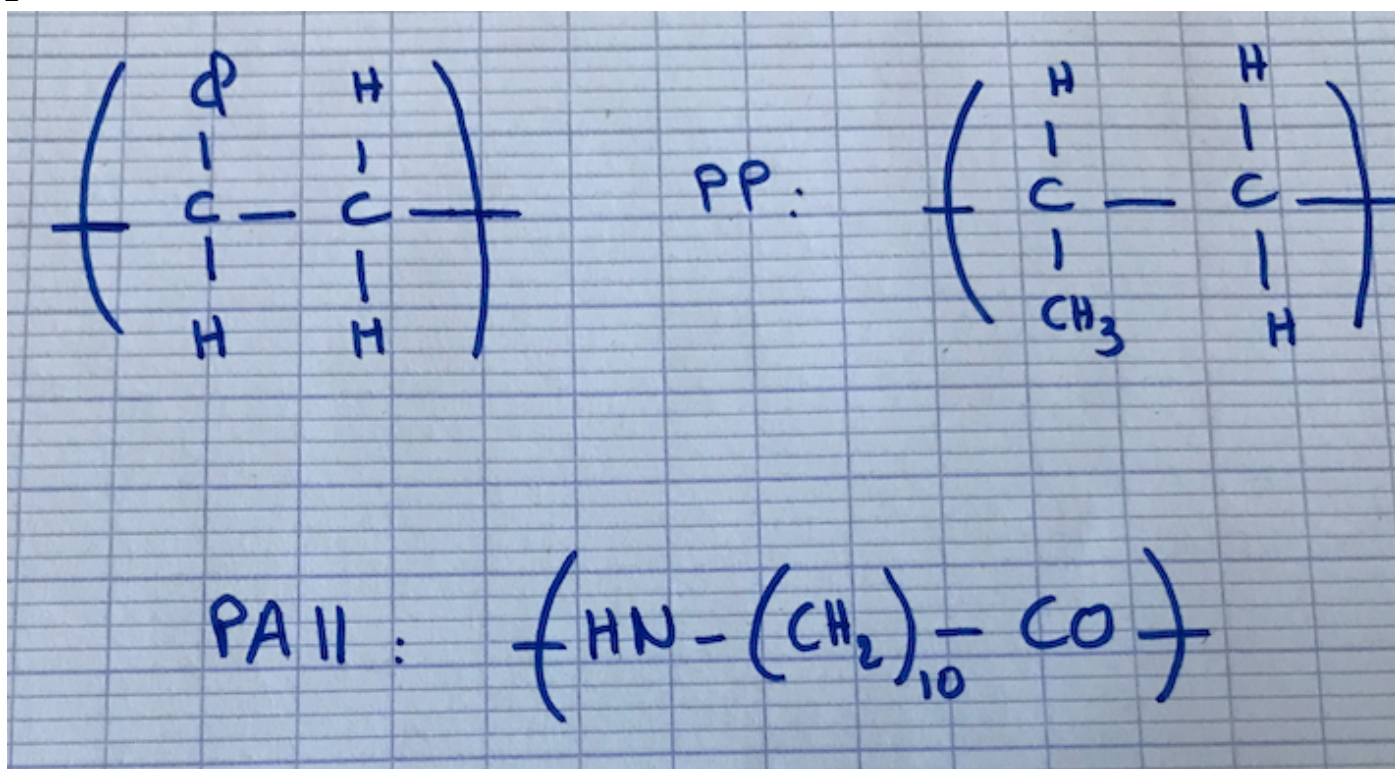 Cl H
C — C
H H
PP:
H H
C — C
CH3 H
PA11 : ( HN - (CH2)10 - CO )